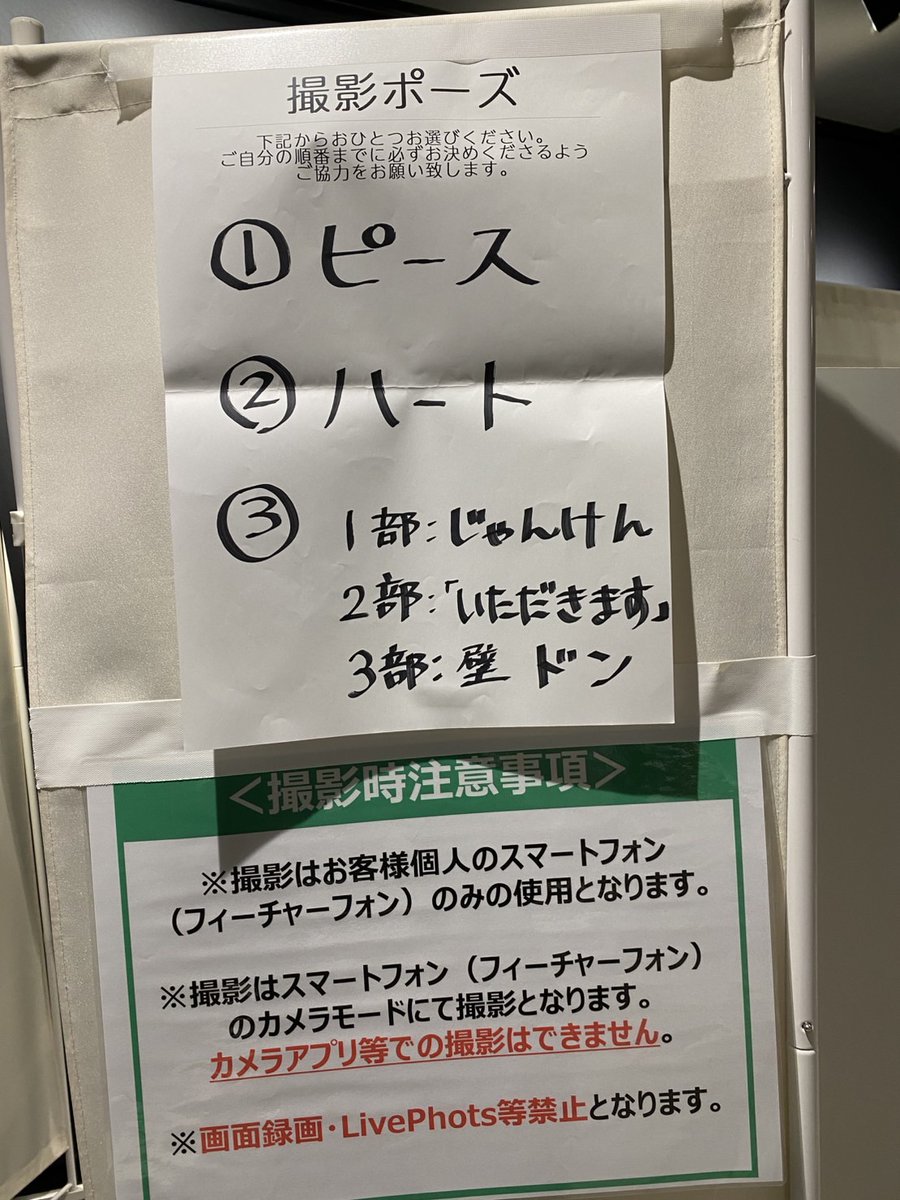 撮影ポーズ
下記からおひとつお選びください。
ご自分の順番までに必ずお決めくださるよう
ご協力をお願い致します。
① ピース
② ハート
③ 1部:じゃんけん
2部:「いただきます」
3部:壁ドン
<撮影時注意事項>
※撮影はお客様個人のスマートフォン
(フィーチャーフォン)のみの使用となります。
※撮影はスマートフォン(フィーチャーフォン)
のカメラモードにて撮影となります。
カメラアプリ等での撮影はできません。
※画面録画・LivePhots等禁止となります。